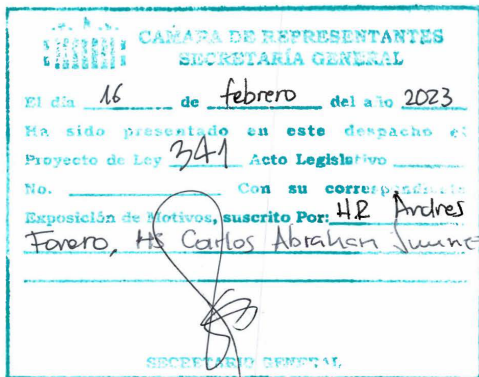 CAMARA DE REPRESENTANTES
SECRETARÍA GENERAL
El día 16 de febrero del año 2023
Ha sido presentado en este despacho el
Proyecto de Ley 341 Acto Legislativo
No. Con su correspondiente
Exposición de Motivos, suscrito Por: HR Andres
Forero, HS Carlos Abraham
SECRETARIO GENERAL